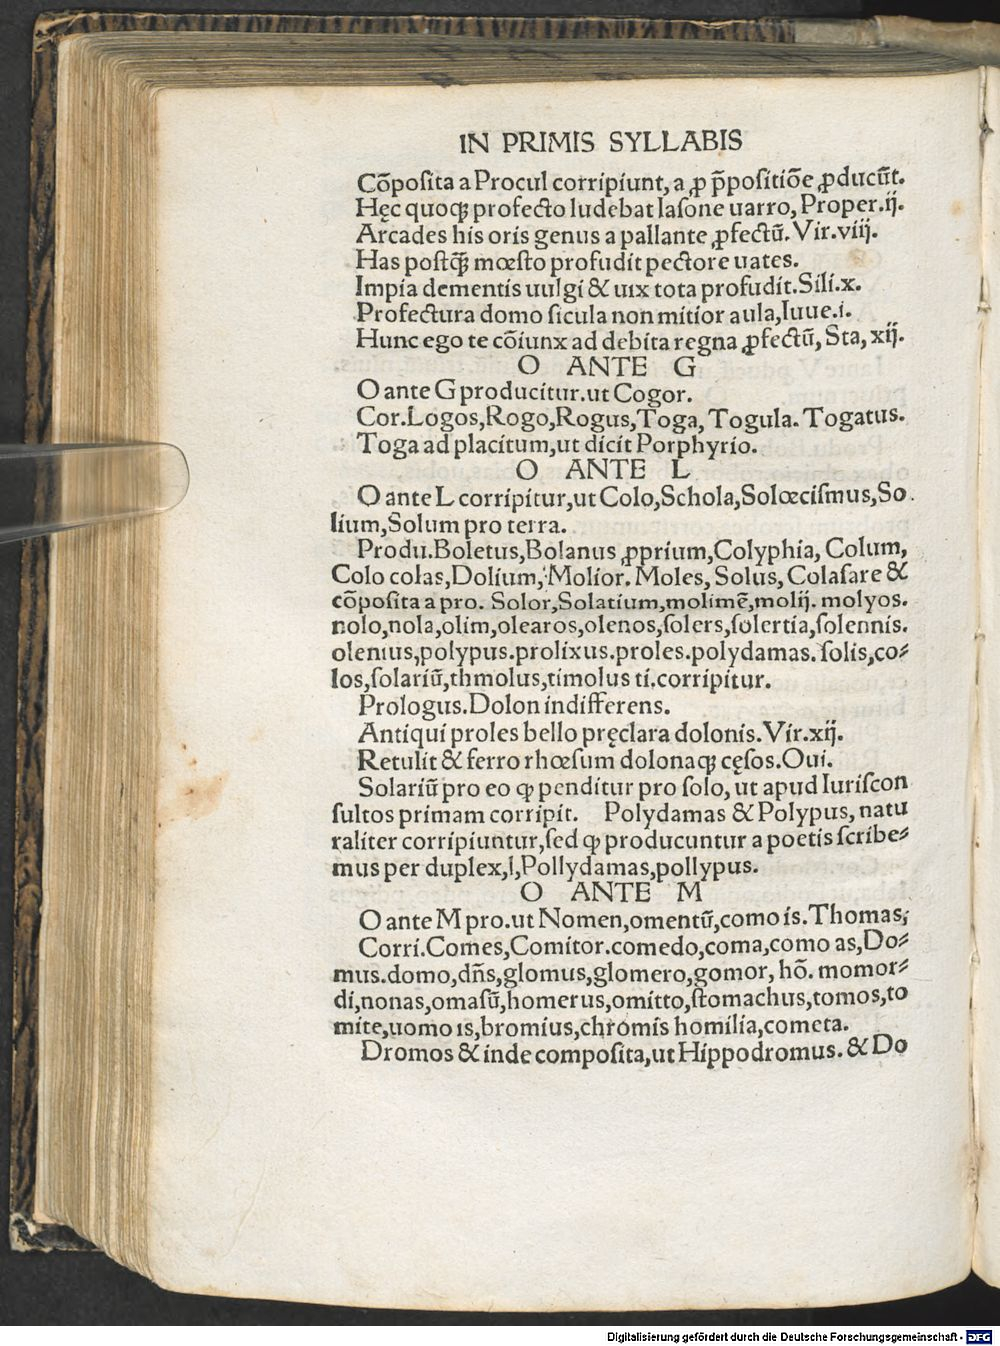 IN PRIMIS SYLLABIS
Cōpoſita a Procul corripiunt, a ꝓ p̄poſitiōe ꝓducūt.
Hęc quoqꝫ profecto ludebat Iaſone uarro, Proper.ij.
Arcades his oris genus a pallante ꝓfectū. Vir.viij.
Has poſtq̄ꝫ mœſto profudit pectore uates.
Impia dementis uulgi & uix tota profudit.Sili.x.
Profectura domo ſicula non mitior aula,Iuue.i.
Hunc ego te cōiunx ad debita regna ꝓfectū, Sta, xij.
O ANTE G
O ante G producitur.ut Cogor.
Cor.Logos,Rogo,Rogus,Toga, Togula. Togatus.
Toga ad placitum,ut dicit Porphyrio.
O ANTE L
O ante L corripitur,ut Colo,Schola,Solœciſmus,So
lium,Solum pro terra.
Produ.Boletus,Bolanus ꝓprium,Colyphia, Colum,
Colo colas,Dolium,Molior. Moles, Solus, Colaſare &
cōpoſita a pro. Solor,Solatium,molimē,molij. molyos.
nolo,nola,olim,olearos,olenos,ſolers,ſolertia,ſolennis.
olenius,polypus.prolixus.proles.polydamas. ſolis,co⸗
los,ſolariū,thmolus,timolus ti.corripitur.
Prologus.Dolon indifferens.
Antiqui proles bello pręclara dolonis.Vir.xij.
Retulit & ferro rhœſum dolonaqꝫ cęſos.Oui.
Solariū pro eo ꝙ penditur pro ſolo, ut apud Iuriſcon
ſultos primam corripit. Polydamas & Polypus, natu
raliter corripiuntur,ſed ꝙ producuntur a poetis ſcribe⸗
mus per duplex,l,Pollydamas,pollypus.
O ANTE M
O ante M pro.ut Nomen,omentū,como is.Thomas,
Corri.Comes,Comitor.comedo,coma,como as,Do⸗
mus.domo,dn̄s,glomus,glomero,gomor, hō. momor⸗
di,nonas,omaſū,homerus,omitto,ſtomachus,tomos,to
mite,uomo is,bromius,chromis homilia,cometa.
Dromos & inde compoſita,ut Hippodromus. & Do
Digitalisierung gefördert durch die Deutsche Forschungsgemeinschaft - DFG